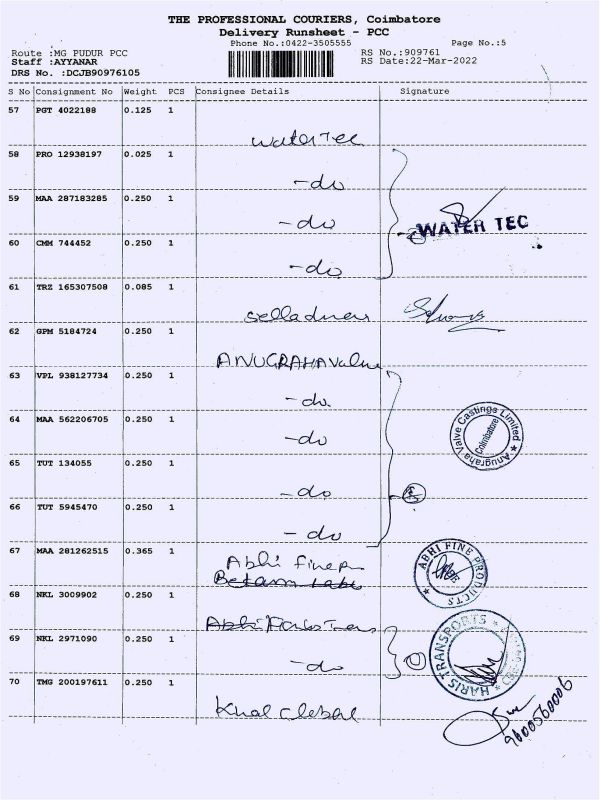 THE PROFESSIONAL COURIERS, Coimbatore
Delivery Runsheet - PCC
Phone No.:0422-3505555 Page No.:5
Route :MG PUDUR PCC RS No.:909761
Staff :AYYANAR RS Date:22-Mar-2022
DRS No. :DCJB90976105
S No Consignment No Weight PCS Consignee Details Signature
57 PGT 4022188 0.125 1
WaterTec
58 PRO 12938197 0.025 1
-do
59 MAA 287183285 0.250 1
-do WATER TEC
60 CMM 744452 0.250 1
-do
61 TRZ 165307508 0.085 1
62 GPM 5184724 0.250 1
ANUGRAHA Valve
63 VPL 938127734 0.250 1
-do
64 MAA 562206705 0.250 1
-do Anugraha Valve Castings Limited Coimbatore
65 TUT 134055 0.250 1
-do
66 TUT 5945470 0.250 1
-do
67 MAA 281262515 0.365 1
Abhi Finep ABHI FINE PRODUCTS
68 NKL 3009902 0.250 1
69 NKL 2971090 0.250 1
-do HARIS TRANSPORTS
70 TMG 200197611 0.250 1
9600560006